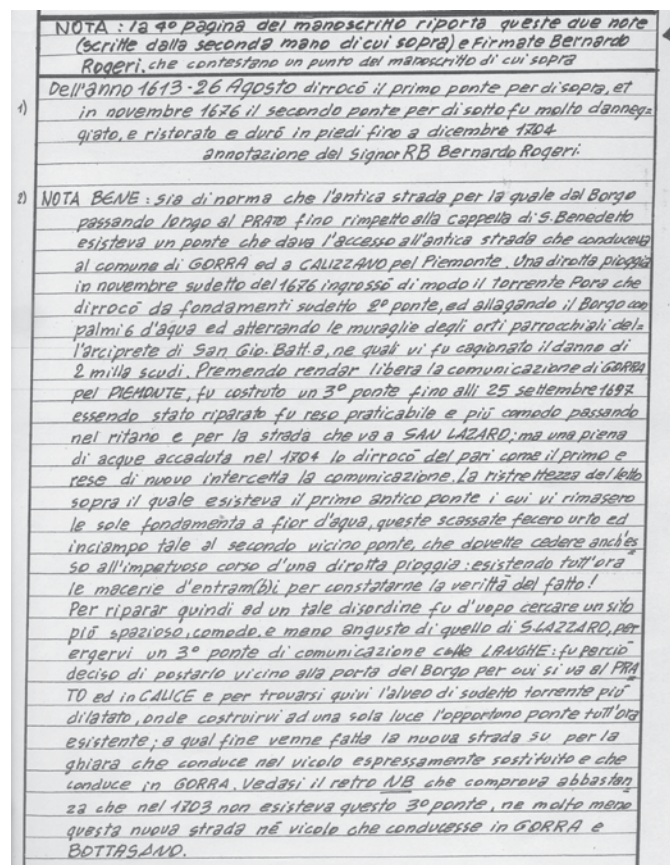 NOTA : la 4º pagina del manoscritto riporta queste due note
(scritte dalla seconda mano di cui sopra) e Firmate Bernardo
Rogeri. che contestano un punto del manoscritto di cui sopra
1) Dell'anno 1613 - 26 Agosto dirrocó il primo ponte per disopra, et
in novembre 1676 il secondo ponte per disotto fu molto danneg=
giato, e ristorato e duró in piedi fino a dicembre 1704
annotazione del Signor RB Bernardo Rogeri.
2) NOTA BENE : sia di norma che l'antica strada per la quale dal Borgo
passando longo al PRATO fino rimpetto alla cappella di S. Benedetto
esisteva un ponte che dava l'accesso all'antica strada che conduceva
al comune di GORRA ed a CALIZZANO pel Piemonte. Una dirotta pioggia
in novembre sudetto del 1676 ingrossó di modo il torrente Pora che
dirrocó da fondamenti sudetto 2º ponte, ed allagando il Borgo con
palmi 6 d'agua ed atterrando le muraglie degli orti parrocchiali del=
l'arciprete di San Gio. Batt.a, ne quali vi fu cagionato il danno di
2 milla scudi. Premendo rendar libera la comunicazione di GORRA
pel PIEMONTE, fu costruto un 3º ponte fino alli 25 settembre 1697
essendo stato riparato fu reso praticabile e piú comodo passando
nel ritano e per la strada che va a SAN LAZARO; ma una piena
di acque accaduta nel 1704 lo dirrocó del pari come il primo e
rese di nuovo intercetta la comunicazione. La ristrettezza del letto
sopra il quale esisteva il primo antico ponte i cui vi rimasero
le sole fondamenta a fior d'agua, queste scassate fecero urto ed
inciampo tale al secondo vicino ponte, che dovette cedere anch'es
so all'impetuoso corso d'una dirotta pioggia : esistendo tutt'ora
le macerie d'entram(b)i per constatarne la veritá del fatto !
Per riparar quindi ad un tale disordine fu d'uopo cercare un sito
piú spazioso, comodo, e meno angusto di quello di S. LAZZARO, per
ergervi un 3º ponte di comunicazione colle LANGHE : fu perció
deciso di postarlo vicino alla porta del Borgo per cui si va al PRA
TO ed in CALICE e per trovarsi quivi l'alveo di sudetto torrente piú
dilatato, onde costruirvi ad una sola luce l'opportuno ponte tutt'ora
esistente ; a qual fine venne fatta la nuova strada su per la
ghiara che conduce nel vicolo espressamente sostituito e che
conduce in GORRA. Vedasi il retro NB che comprova abbastan
za che nel 1703 non esisteva questo 3º ponte, ne molto meno
questa nuova strada né vicolo che conducesse in GORRA e
BOTTASANO.